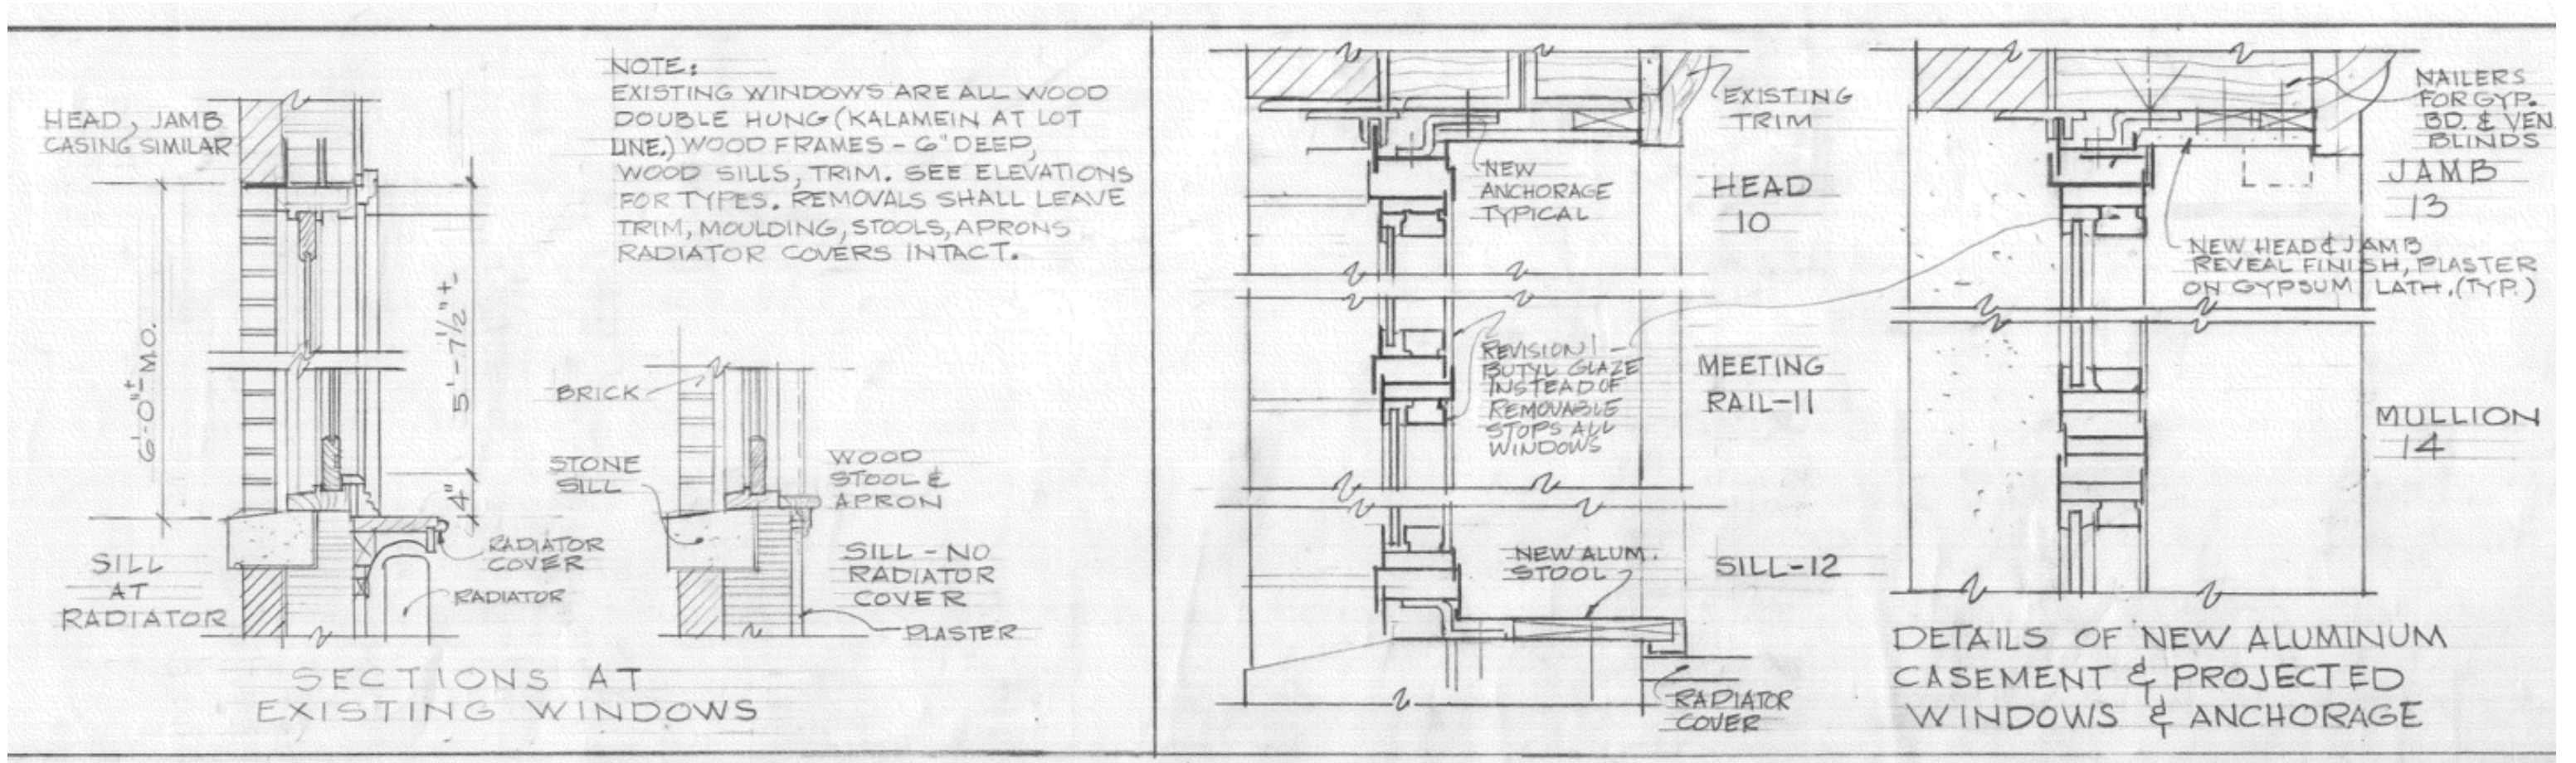 HEAD, JAMB
CASING SIMILAR
6'-0"± M.O.
5'-7½"±
4"
SILL
AT
RADIATOR
RADIATOR
COVER
RADIATOR
NOTE:
EXISTING WINDOWS ARE ALL WOOD
DOUBLE HUNG (KALAMEIN AT LOT
LINE.) WOOD FRAMES - 6" DEEP,
WOOD SILLS, TRIM. SEE ELEVATIONS
FOR TYPES. REMOVALS SHALL LEAVE
TRIM, MOULDING, STOOLS, APRONS
RADIATOR COVERS INTACT.
BRICK
STONE
SILL
WOOD
STOOL &
APRON
SILL - NO
RADIATOR
COVER
PLASTER
SECTIONS AT
EXISTING WINDOWS
EXISTING
TRIM
NEW
ANCHORAGE
TYPICAL
HEAD
10
REVISION 1 -
BUTYL GLAZE
INSTEAD OF
REMOVABLE
STOPS ALL
WINDOWS
MEETING
RAIL-11
NEW ALUM.
STOOL
SILL-12
RADIATOR
COVER
NAILERS
FOR GYP.
BD. & VEN.
BLINDS
JAMB
13
NEW HEAD & JAMB
REVEAL FINISH, PLASTER
ON GYPSUM LATH. (TYP.)
MULLION
14
DETAILS OF NEW ALUMINUM
CASEMENT & PROJECTED
WINDOWS & ANCHORAGE